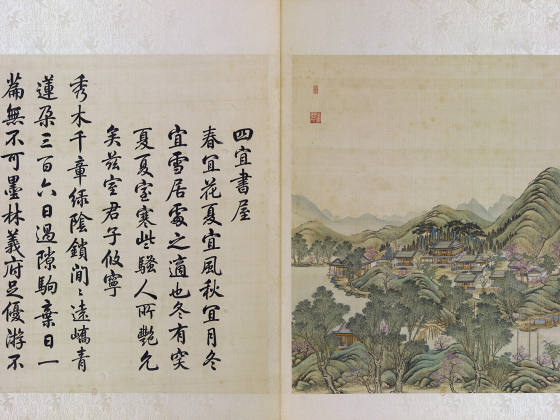 四宜書屋
春宜花夏宜風秋宜月冬
宜雪居處之適也冬有突
夏夏室寒些騷人所艷允
矣茲室君子攸寧
秀木千章綠陰鎖間〻遠嶠青
蓮朵三百六日過隙駒棄日一
篇無不可墨林義府足優游不